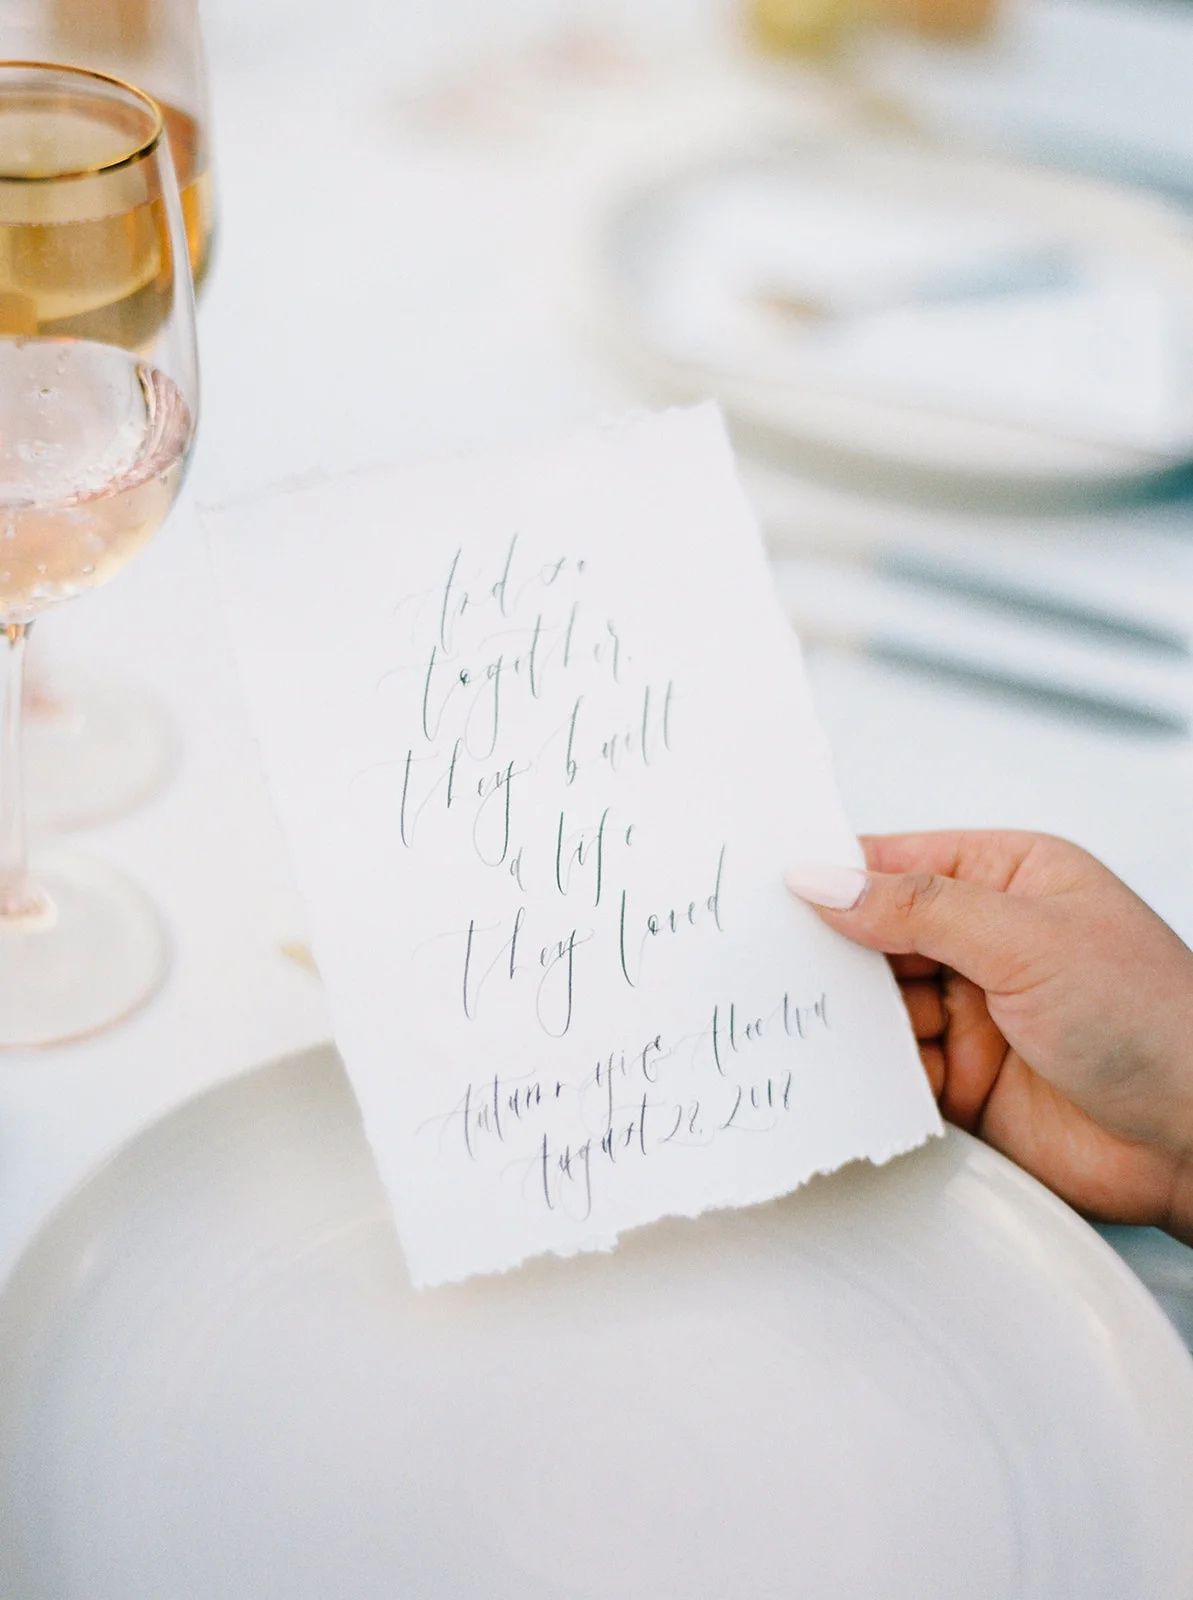 And so
together,
they built
a life
they loved
Autumn
August 28, 2018